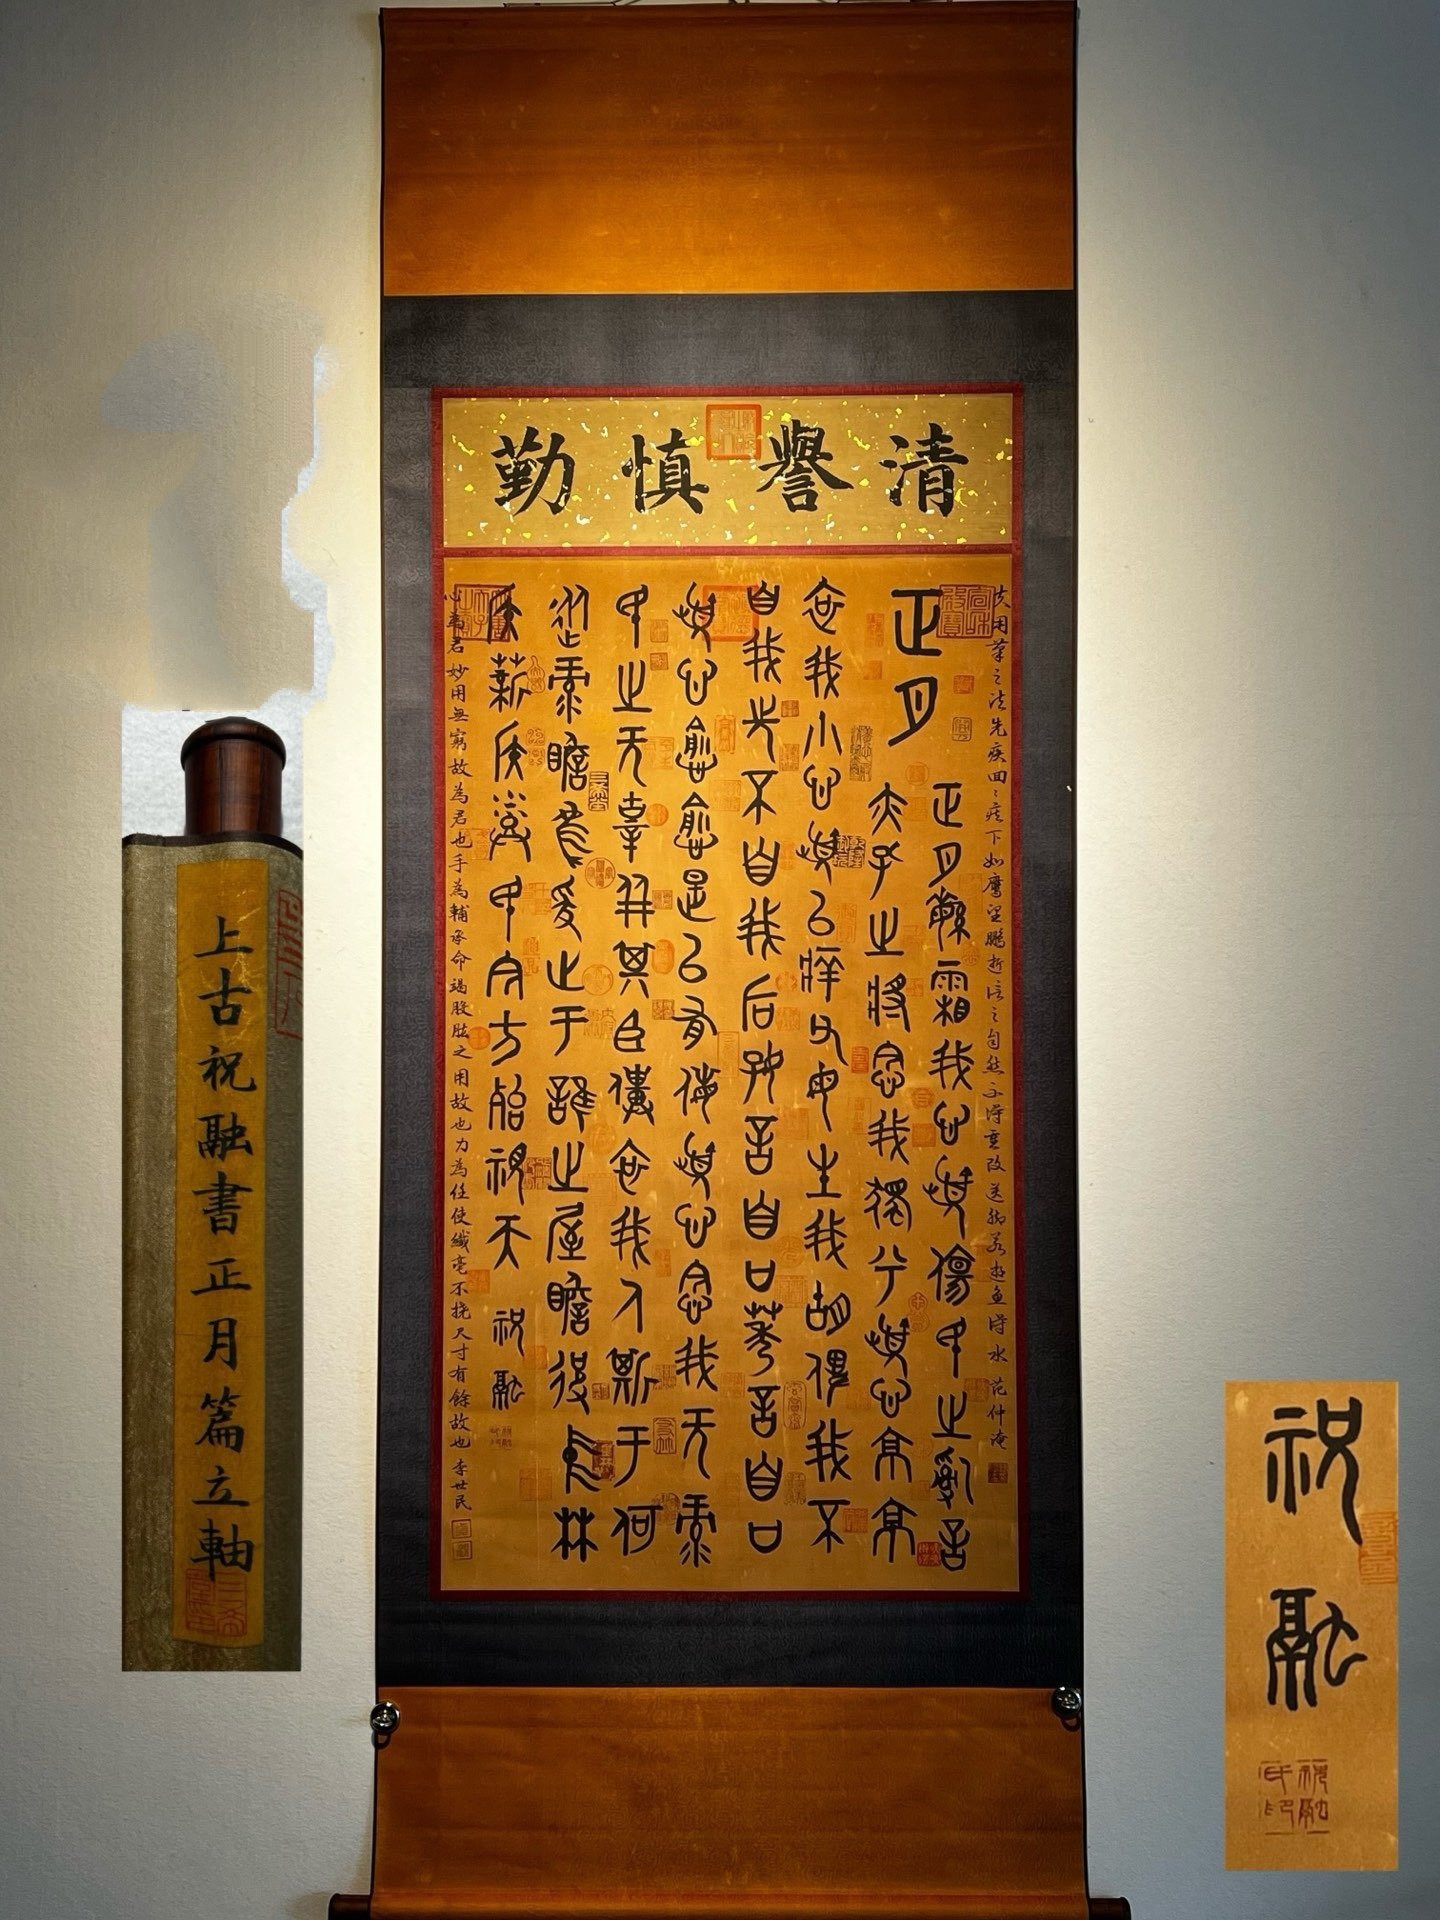 清譽慎勤
夫用筆之法先疾回疾下如鷹望鵬逝信之自然不得重改送腳若遊魚得水 范仲淹
正月
正月繁霜我心憂傷民之訛言
亦孔之將念我獨兮憂心京京
哀我小心憂以痒父母生我胡俾我不
自我先不自我后好言自口莠言自口
憂心愈愈是以有侮憂心念我无祿
民之无辜并其臣僕哀我人斯于何
從祿瞻烏爰止于誰之屋瞻彼中林
侯薪侯蒸民今方殆視天 祝融
心為君妙用無窮故為君也手為輔承命竭股肱之用故也力為任使纖毫不撓尺寸有餘故也 李世民
上古祝融書正月篇立軸
祝融
祝融氏印